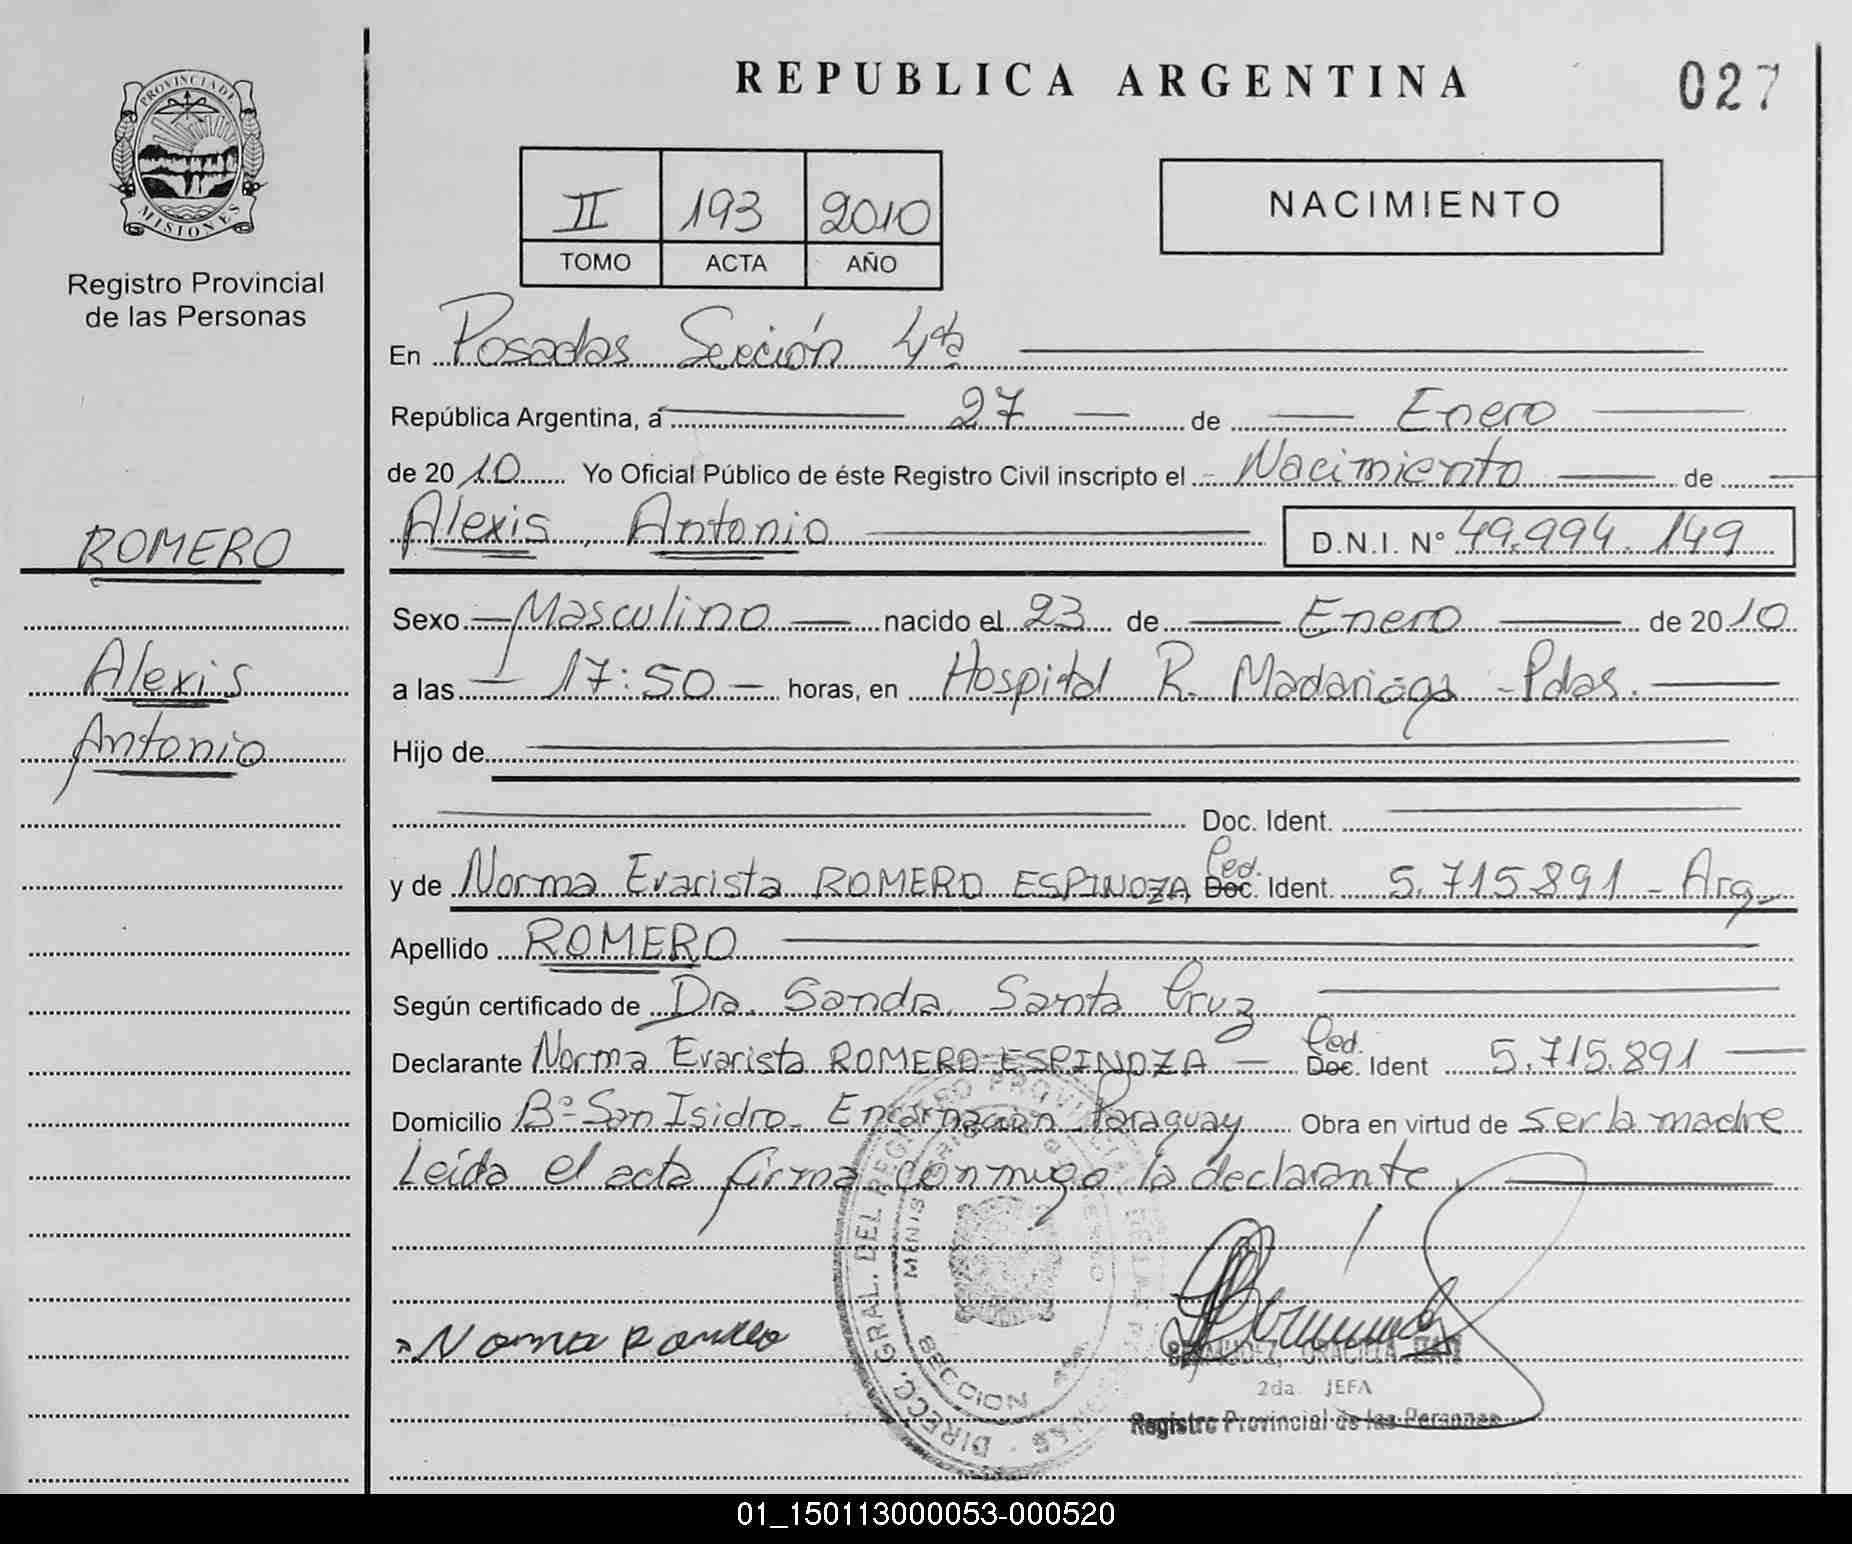 REPUBLICA ARGENTINA
027
PROVINCIA DE
MISIONES
Registro Provincial
de las Personas
II 193 2010
TOMO ACTA AÑO
NACIMIENTO
En Posadas Sección 4ta
República Argentina, a 27 de Enero
de 2010 Yo Oficial Público de éste Registro Civil inscripto el Nacimiento de
Alexis Antonio D.N.I. N° 49.994.149
ROMERO
Alexis
Antonio
Sexo Masculino nacido el 23 de Enero de 2010
a las 17:50 horas, en Hospital R. Madariaga - Pdas.
Hijo de
Doc. Ident.
y de Norma Evarista ROMERO ESPINOZA Ced. Doc. Ident. 5.715.891 - Arg.
Apellido ROMERO
Según certificado de Dra. Sandra Santa Cruz
Declarante Norma Evarista ROMERO ESPINOZA Ced. Doc. Ident 5.715.891
Domicilio Bº San Isidro - Encarnación Paraguay Obra en virtud de ser la madre
Leída el acta firma conmigo la declarante
DIRECC. GRAL. DEL REGISTRO PROVINCIAL
SECCION
Norma Romero
BERMUDEZ, GRACIELA
2da. JEFA
Registro Provincial de las Personas
01_150113000053-000520